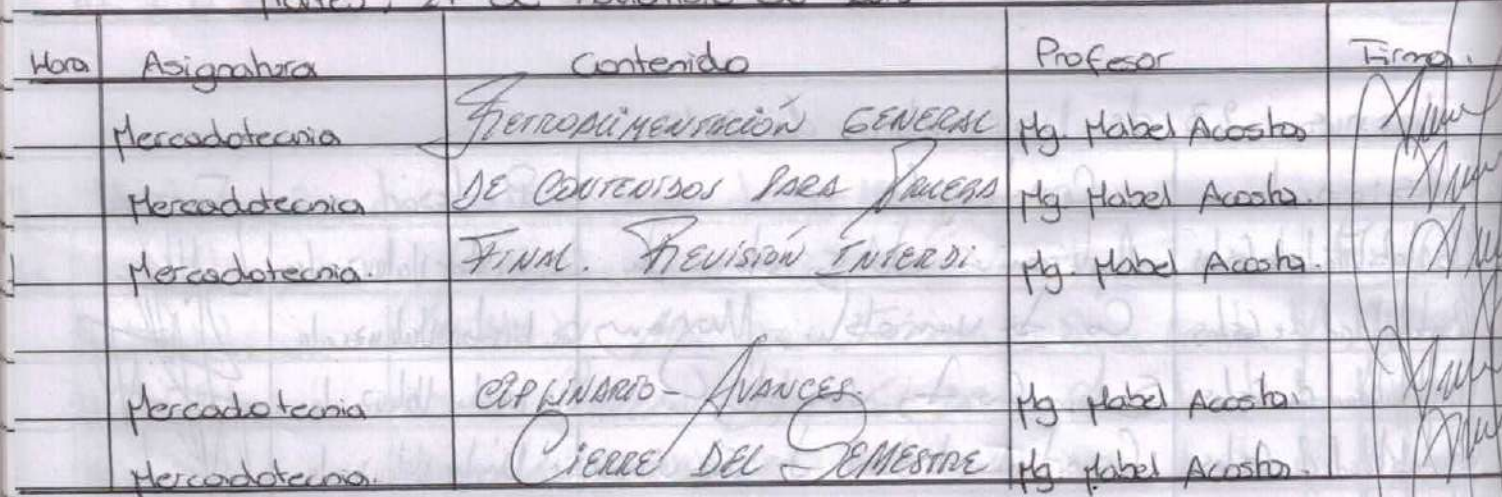 Hora Asignatura Contenido Profesor Firma.
Mercadotecnia Retroalimentación GENERAL Mg. Mabel Acosta
Mercadotecnia DE CONTENIDOS PARA PRUEBA Mg Mabel Acosta.
Mercadotecnia. FINAL. REVISIÓN INTERDI Mg. Mabel Acosta.
Mercadotecnia CIPLINARIO - AVANCES. Mg Mabel Acosta.
Mercadotecnia. CIERRE DEL SEMESTRE Mg. Mabel Acosta.